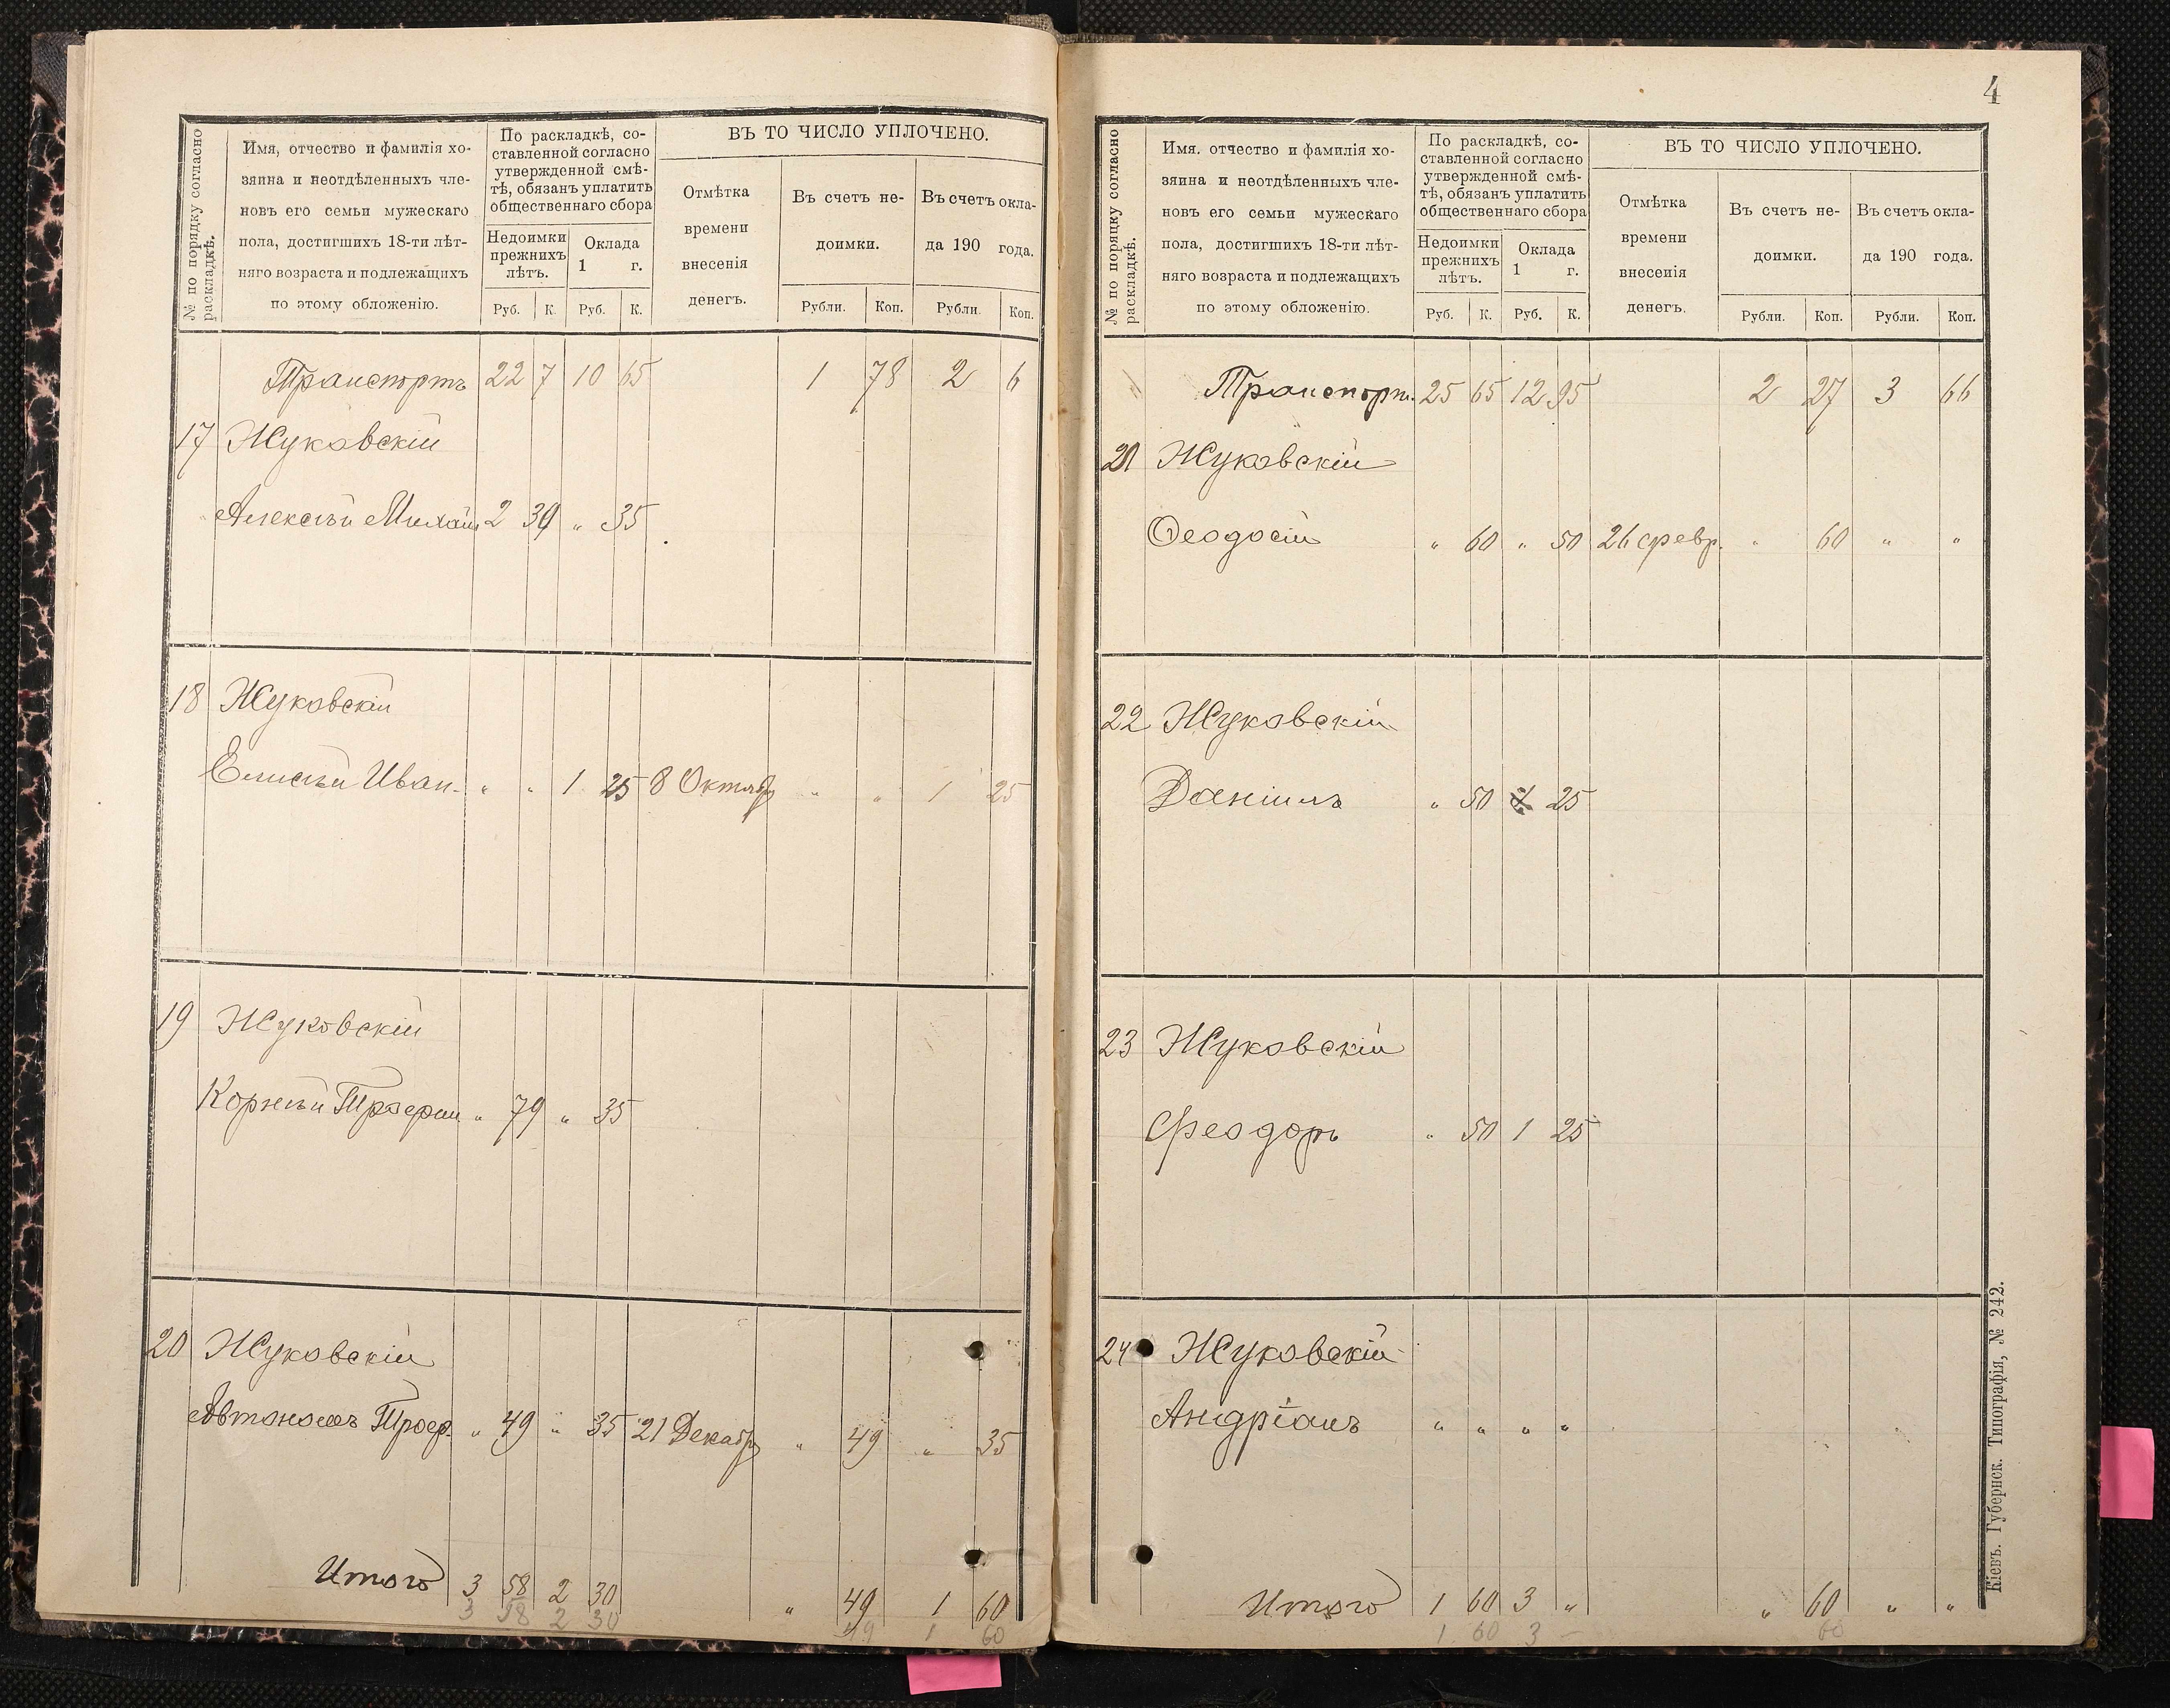 № по порядку согласно раскладкѣ.
Имя, отчество и фамилія хо-
зяина и неотдѣленныхъ чле-
новъ его семьи мужескаго
пола, достигшихъ 18-ти лѣт-
няго возраста и подлежащихъ
по этому обложенію.
По раскладкѣ, со-
ставленной согласно
утвержденной смѣ-
тѣ, обязанъ уплатить
общественнаго сбора
Недоимки
прежнихъ
лѣтъ.
Оклада
1 г.
Руб. К. Руб. К.
ВЪ ТО ЧИСЛО УПЛОЧЕНО.
Отмѣтка
времени
внесенія
денегъ.
Въ счетъ не-
доимки.
Въ счетъ окла-
да 190 года.
Рубли. Коп. Рубли. Коп.
Транспортъ 22 7 10 65 1 78 2 6
17 Жуковскій
Алексѣй Михайл 2 39 " 35
18 Жуковскій
Елисѣй Иван. " " 1 25 8 Октябр " " 1 25
19 Жуковскій
Корнѣй Трофим " 79 " 35
20 Жуковскій
Автономъ Троф. " 49 " 35 21 Декабр " 49 " 35
Итого 3 58 2 30 " 49 1 60
3 58 2 30 49 1 60
4
№ по порядку согласно раскладкѣ.
Имя. отчество и фамилія хо-
зяина и неотдѣленныхъ чле-
новъ его семьи мужескаго
пола, достигшихъ 18-ти лѣт-
няго возраста и подлежащихъ
по этому обложенію.
По раскладкѣ, со-
ставленной согласно
утвержденной смѣ-
тѣ, обязанъ уплатить
общественнаго сбора
Недоимки
прежнихъ
лѣтъ.
Оклада
1 г.
Руб. К. Руб. К.
ВЪ ТО ЧИСЛО УПЛОЧЕНО.
Отмѣтка
времени
внесенія
денегъ.
Въ счетъ не-
доимки.
Въ счетъ окла-
да 190 года.
Рубли. Коп. Рубли. Коп.
Транспорт. 25 65 12 95 2 27 3 66
21 Жуковскій
Ѳеодосій " 60 " 50 26 февр. " 60 " "
22 Жуковскій
Даніилъ " 50 1 25
23 Жуковскій
Феодоръ " 50 1 25
24 Жуковскій
Андріанъ " " " "
Итого 1 60 3 " " 60 " "
1 60 3 – 60
Кіевъ. Губернск. Типографія, № 242.